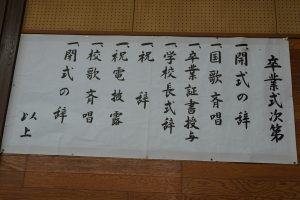 卒業式次第
一、開式の辞
一、国歌斉唱
一、卒業証書授与
一、学校長式辞
一、祝辞
一、祝電披露
一、校歌斉唱
一、閉式の辞
以上